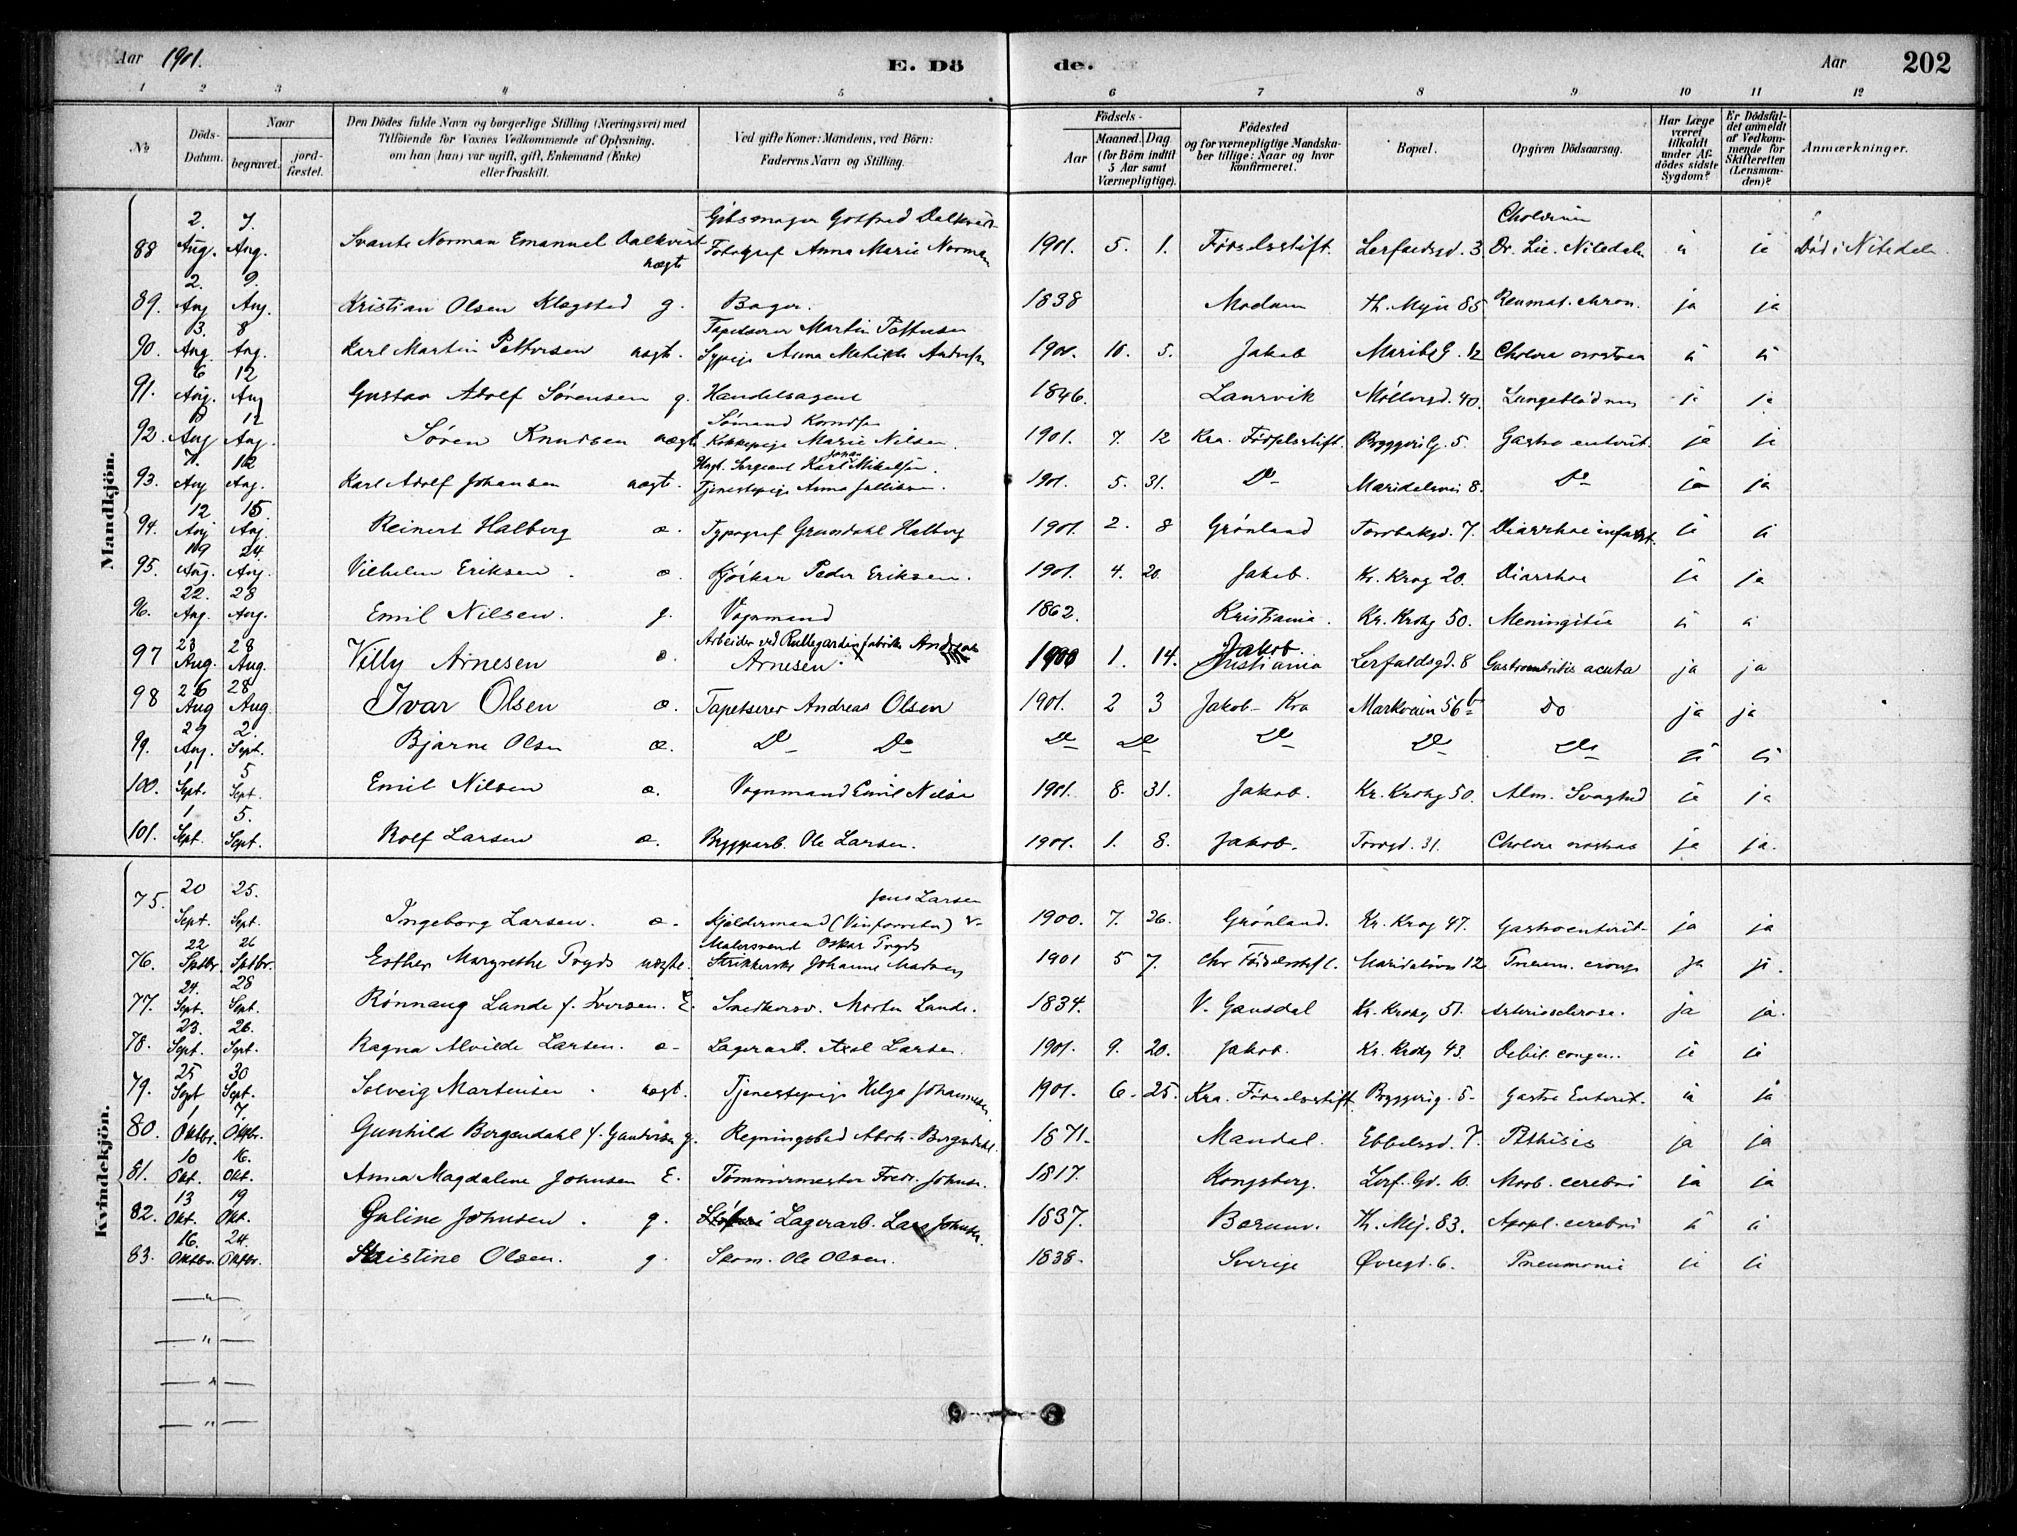 Aar 1901.
E. Dö
de.
Aar
202
1 2 3 4 5 6 7 8 9 10 11 12
№
Döds-Datum.
Naar
begravet.
jord-fæstet.
Den Dödes fulde Navn og borgerlige Stilling (Næringsvei) med Tilföiende for Voxnes Vedkommende af Oplysning, om han (hun) var ugift, gift, Enkemand (Enke) eller fraskilt.
Ved gifte Koner: Mandens, ved Börn: Faderens Navn og Stilling.
Födsels-
Aar
Maaned. Dag
(for Börn indtil 5 Aar samt Værnepligtige).
Födested og for værnepligtige Mandskaber tillige: Naar og hvor konfirmeret.
Bopæl.
Opgiven Dödsaarsag.
Har Læge været tilkaldt under Afdödes sidste Sygdom?
Er Dödsfaldet anmeldt af Vedkommende for Skifteretten (Lensmanden)?
Anmærkninger.
Mandkjön.
88 2. Aug. 7. Aug. Svante Norman Emanuel Dalkvist uægte Gibsmager Gotfred Dalkvist Fotograf Anna Marie Norman 1901. 5. 1. Fødselsstift. 3. Nitedalen ja ja Død i Nitedalen.
89. 2. Aug 9. Aug. Kristian Olsen Klægstad g. Bager. 1838 Modum Th. Myer 85 Reumat. chron. ja ja
90. 3. Aug. 8 Aug. Karl Martin Pettersen uægt. Tapetserer Martin Pettersen Sypige Anna Matilde 1901. 5. Jakob Maribg. 12 Cholera nostras ja ja
91. 6 Aug. 12 Aug Gustav Adolf Sørensen g. Handelsagent 1846. Laurvik Møllergd. 40. ja ja
92. 8 Aug 12 Aug. Søren Knudsen uægt. Sømand Kokkepige Marie Nilsen. 1901. 7. 12 Kra. Fødselsstift. Byggerig. 5. Gastro enterit. ja ja
93. 7. Aug 12 Aug. Karl Adolf Johansen uægt. Ungk. Sergeant Karl Johan Mikelsen. Tjenestepige Anna 1901. 5. 31. Do Maridalsvei 8. Do ja ja
94. 12 Aug 15 Aug. Reinert Halberg æ. Typograf Halberg 1901. 2. 8 Grønland Torvbakgd. 7. Diarrhoe infant. ja ja
95. 19 Aug. 24. Aug. Vilhelm Eriksen. æ. Kjørkar Peder Eriksen. 1901. 4. 20. Jakob. Kr. Krog 20. Diarrhoe ja ja
96. 22. Aug. 28 Aug. Emil Nilsen. g. Vognmand 1862. Kristiania. Kr. Krohg 50. Meningitis ja ja
97 23 Aug. 28 Aug. Villy Arnesen æ. Arbeider ved Rullegardinfabrik Andreas Arnesen. 1900 1. 14. Jakob. Kristiania Lerfaldsgd. 8 Gastroenteritis acuta ja ja
98 26 Aug 28 Aug. Ivar Olsen æ. Tapetserer Andreas Olsen 1901. 2 3 Jakob Kra Markveien 56b Do ja ja
99. 29 Aug. 2. Sept. Bjarne Olsen æ. Do Do Do Do Do Do Do ja ja
100. 1 Sept. 5 Sept. Emil Nilsen æ. Vognmand Emil Nilsen 1901. 8. 31. Jakob. Kr. Krohg 50. Alm. Svaghed ja ja
101. 1 Sept. 5. Sept. Rolf Larsen æ. Byggarb. Ole Larsen. 1901. 1. 8. Jakob. Torvgd. 31. Cholera nostras ja ja.
Kvindekjön.
75. 20 Sept. 25. Sept. Ingeborg Larsen. æ. Jens Larsen Kjeldermand 1900. 7. 26. Grønland. Kr. Krog 47. Gastroenterit. ja ja
76. 22 Sptbr. 26 Sptbr. Esther Margrethe Tryds uægte. Malersvend Oskar Tryds Strikkerske Johanne Madsen 1901 5 7. Chr Fødselsstift. Maridalsvei 12 ja ja.
77. 24. Sept. 28 Sept. Rønnaug Lunde f. Iversen. E. Snedkersv. Morten Lunde. 1834. V. Gausdal Kr. Krohg 51. Arteriosclerose. ja ja.
78. 23. Sept. 26. Sept. Ragna Alvilde Larsen. æ Lagerarb. Axel Larsen. 1901. 9. 20. Jakob. Kr. Krohg 43. Debil. congen. ja ja
79. 25 Sept 30 Sept. Solveig Martinsen. uægt. Tjenestepige Helga Johannesen 1901. 6. 25. Kra. Fødselsstift. Byggerig. 5. Gastro Enterit. ja ja
80. 1 Oktbr. 7. Oktbr. Gunhild Bergendahl f. g. Abrh. Bergendahl. 1871. Mandal. Ebbelsgd. 7. Pthisis ja ja
81. 10 Okt. 16. Okt. Anna Magdalene Johnsen E. Tømmermester Fredr. Johnsen. 1817. Kongsberg. Lerf. Gd. 10. Morb. cerebri ja ja
82. 13 Okt. 19 Okt. Guline Johnsen. g. Lagerarb. Lars Johnsen. 1837. Bærum. Th. Mej. 83. Apopl. cerebri ja ja
83. 16. Oktbr. 24. Oktbr. Kristine Olsen. g. Skom. Ole Olsen. 1838. Sverige Øvregd. 6. Pneumonie ja ja
— " —
— " —
— " —
— " —